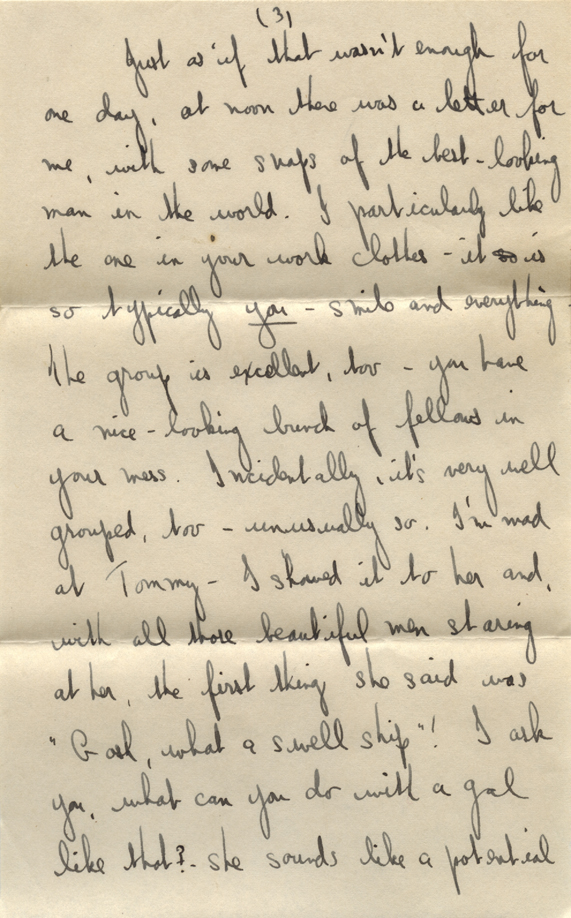 (3)
Just as if that wasn't enough for
one day, at noon there was a letter for
me, with some snaps of the best-looking
man in the world. I particularly like
the one in your work clothes - it so is
so typically you - smile and everything
The group is excellent, too - you have
a nice-looking bunch of fellows in
your mess. Incidentally, it's very well
grouped, too - unusually so. I'm mad
at Tommy - I showed it to her and,
with all those beautiful men staring
at her, the first thing she said was
"Gosh, what a swell ship"! I ask
you, what can you do with a gal
like that? - she sounds like a potential